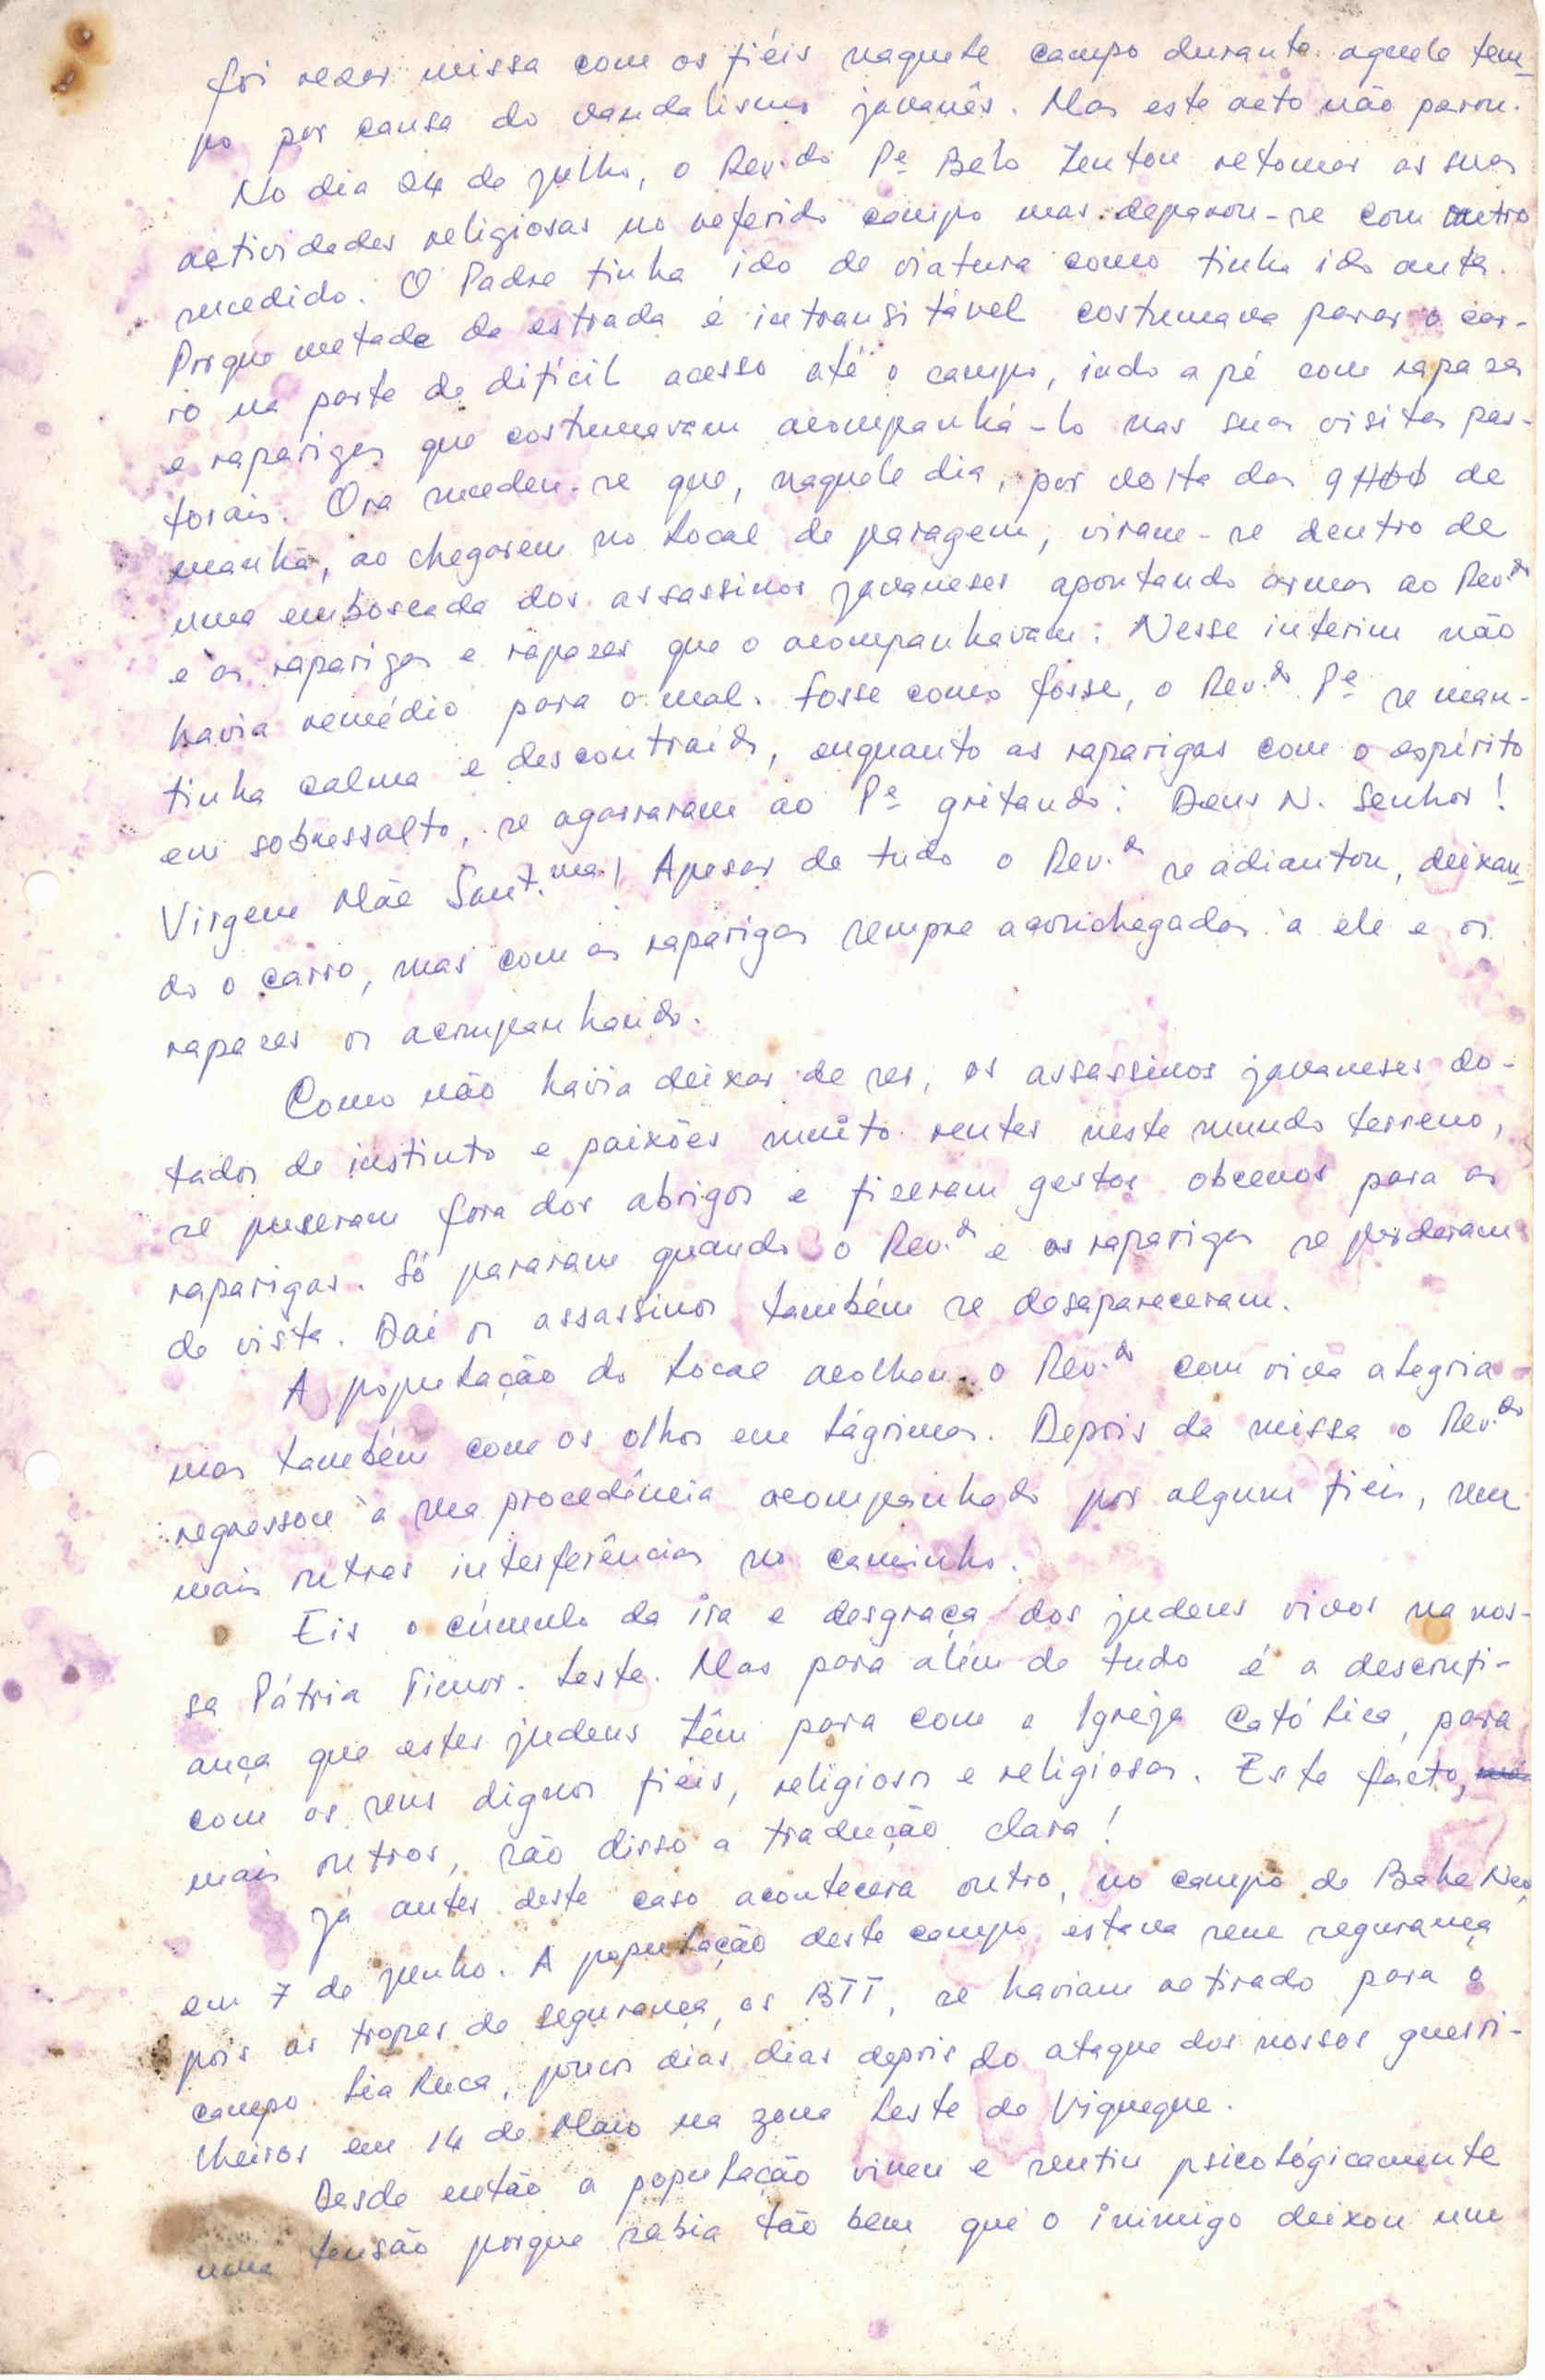 foi rezar missa com os fiéis naquele campo durante aquele tem-
po por causa do vandalismo javanês. Mas este acto não parou.
No dia 24 de julho, o Rev.do Pe Belo tentou retomar as suas
actividades religiosas no referido campo mas deparou-se com outro
sucedido. O Padre tinha ido de viatura como tinha ido antes.
Porque metade da estrada é intransitável costumava parar o car-
ro na parte de difícil acesso até o campo, indo a pé com rapazes
e raparigas que costumavam acompanhá-lo nas suas visitas pas-
torais. Ora sucedeu-se que, naquele dia, por volta das 9H00 de
manhã, ao chegarem no local de paragem, viram-se dentro de
uma emboscada dos assassinos javaneses apontando armas ao Rev.do
e às raparigas e rapazes que o acompanhavam. Nesse interim não
havia remédio para o mal. Fosse como fosse, o Rev.do Pe se man-
tinha calma e descontraído, enquanto as raparigas com o espírito
em sobressalto, se agarraram ao Pe gritando: Deus N. Senhor!
Virgem Mãe Sant.ma! Apesar de tudo o Rev.do se adiantou, deixan-
do o carro, mas com as raparigas sempre aconchegadas à ele e os
rapazes os acompanhando.
Como não havia deixar de ser, os assassinos javaneses do-
tados de instinto e paixões muito rentes neste mundo terreno,
se puseram fora dos abrigos e fizeram gestos obcenos para as
raparigas. Só pararam quando o Rev.do e as raparigas se perderam
de vista. Daí os assassinos também se desapareceram.
A população do local acolheu o Rev.do com viva alegria
mas também com os olhos em lágrimas. Depois da missa o Rev.do
regressou à sua procedência acompanhado por algum fiéis, sem
mais outras interferências no caminho.
Eis o cúmulo da ira e desgraça dos judeus vivos na nos-
sa Pátria Timor-Leste. Mas para além de tudo é a desconfi-
ança que estes judeus têm para com a Igreja Católica, para
com os seus dignos fiéis, religiosos e religiosas. Este facto,
mais outros, são disso a tradução clara!
Já antes deste caso acontecera outro, no campo de Baha Neo,
em 7 de junho. A população deste campo estava sem segurança
pois as tropas de segurança, os BTT, se haviam retirado para o
campo Lia Ruca, poucos dias dias depois do ataque dos nossos guerri-
lheiros em 14 de Maio na zona Leste de Viqueque.
Desde então a população viveu e sentiu psicológicamente
uma tensão porque sabia tão bem que o inimigo deixou um